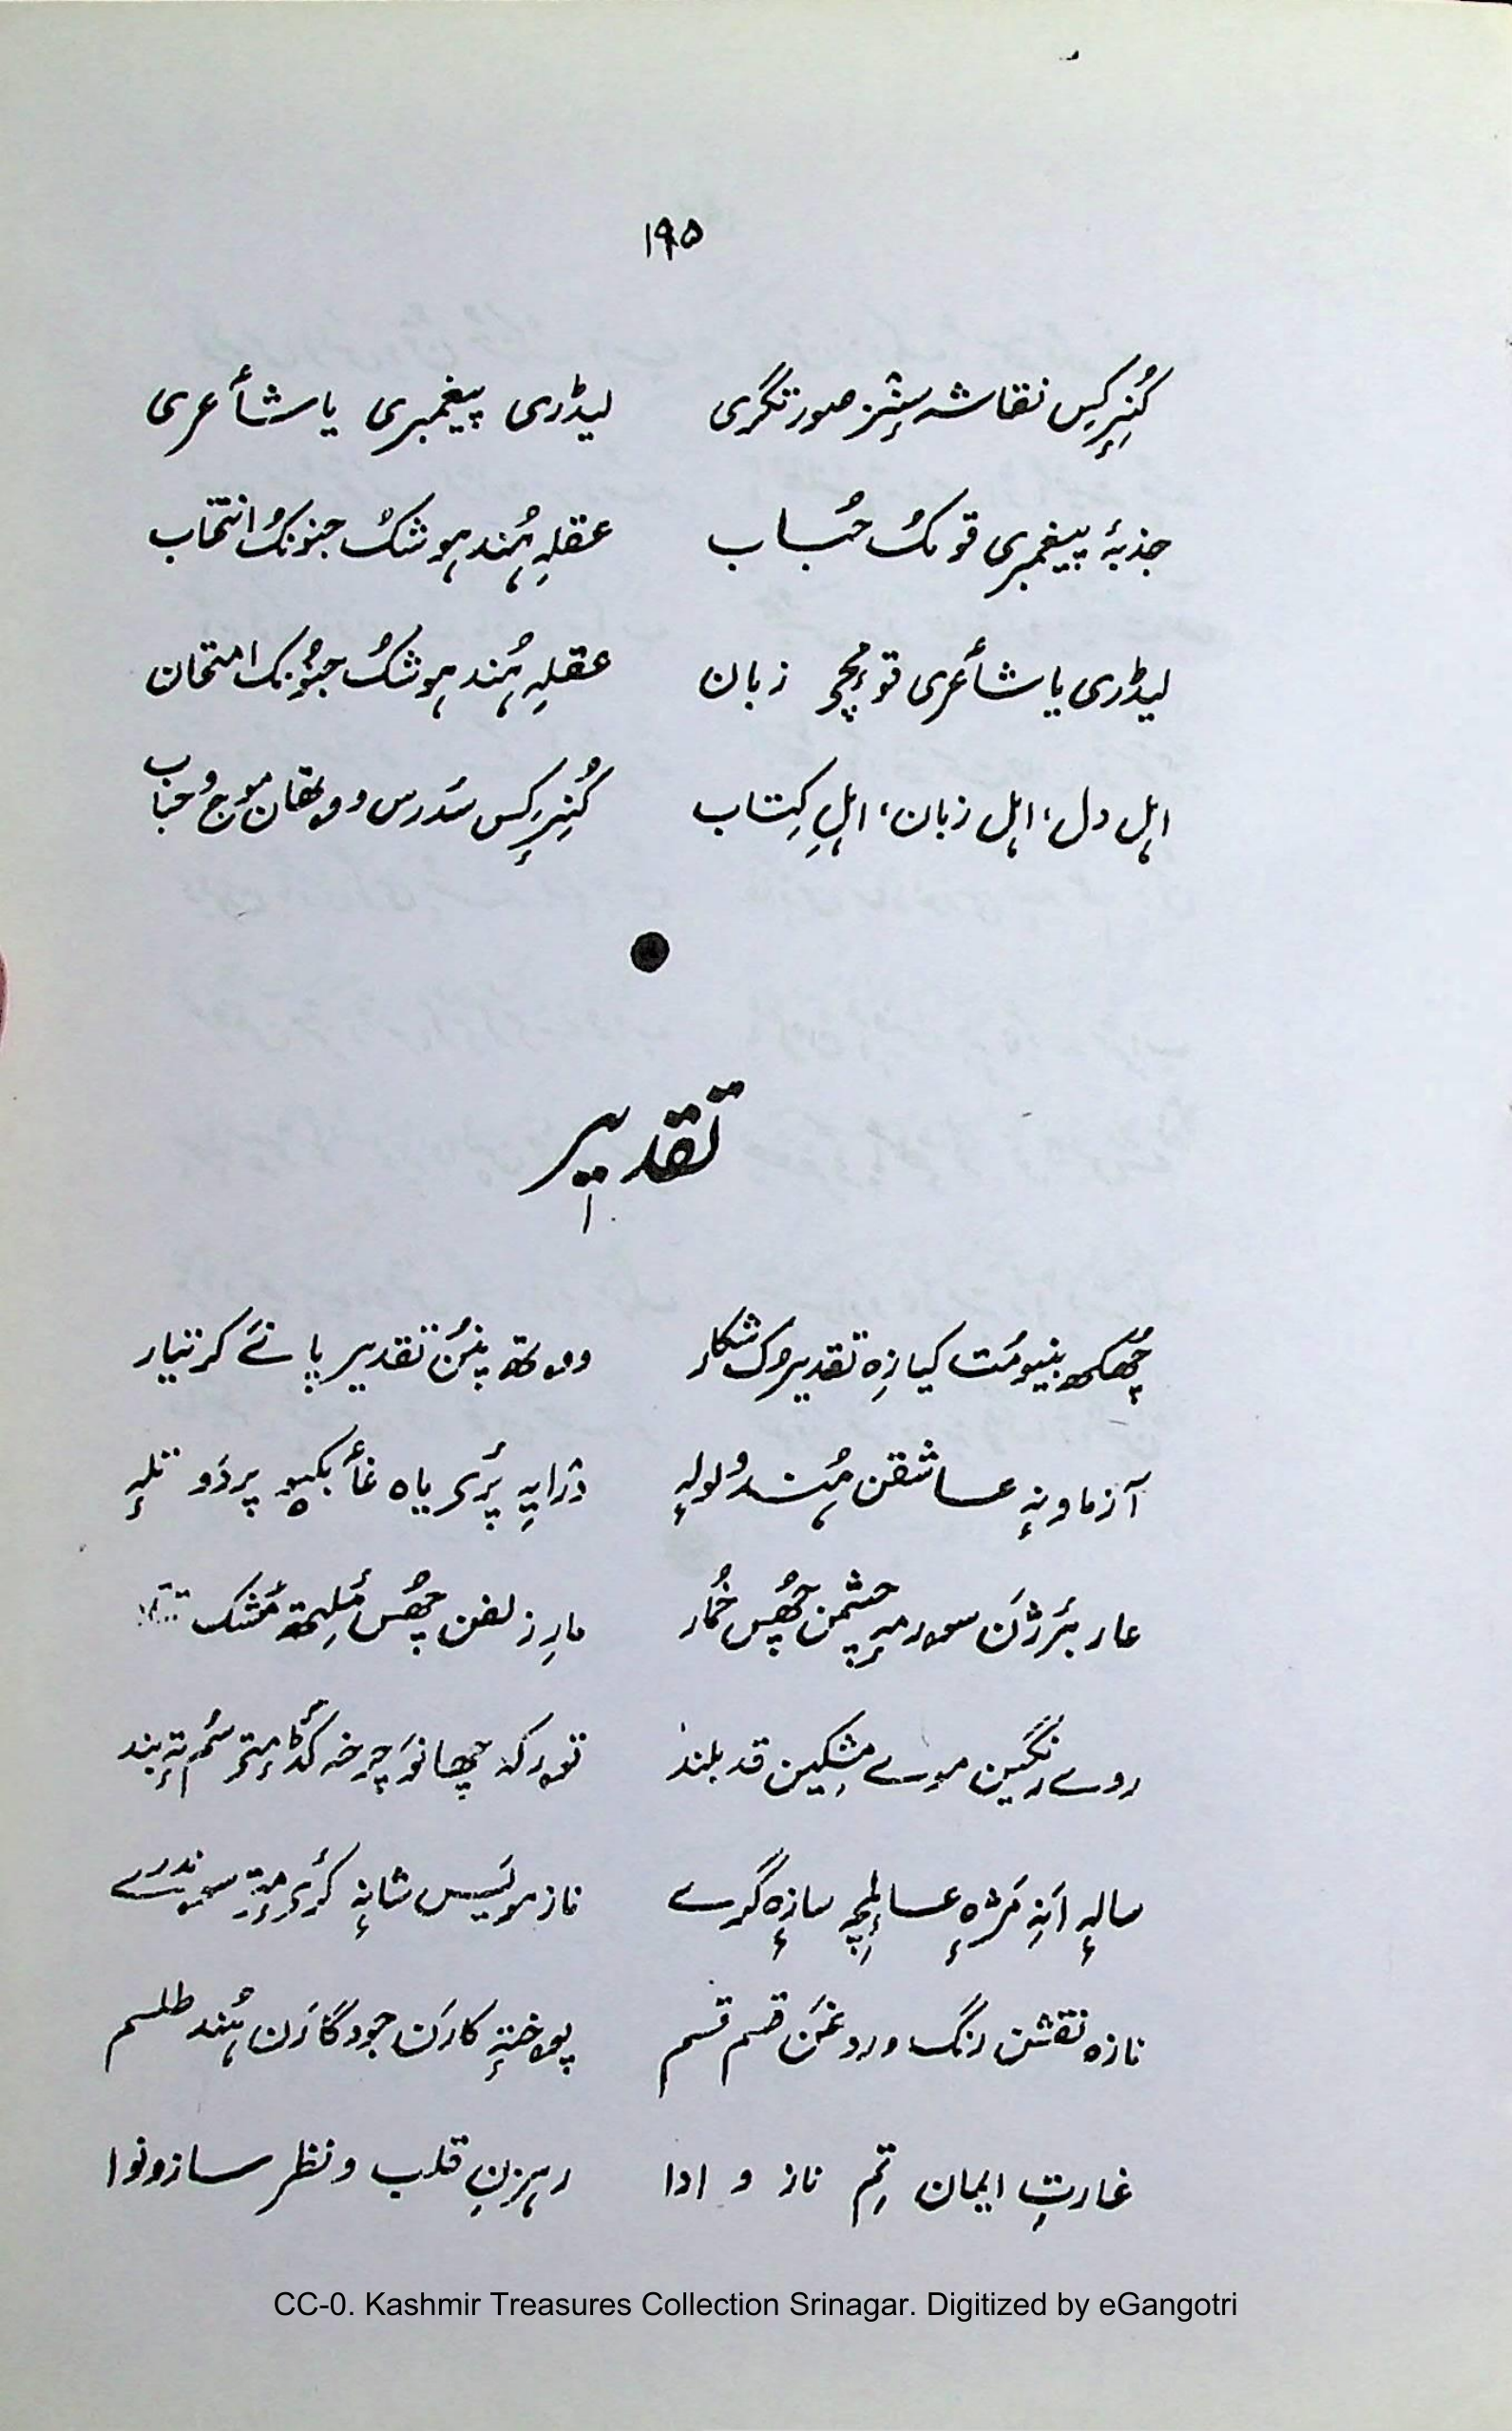 ۱۹۵
کُنِرِکِس نقاشہ سٕنز صورتگری لیڈری پیغمبری یا شأعری
جذبۂ پیغمبری قومُک حُساب عقلہِ ہُند ہوشُک جنونُک انتخاب
لیڈری یا شأعری قومٕچ زبان عقلہِ ہُند ہوشُک جنونُک امتحان
اہل دل، اہل زبان، اہلِ کِتاب کُنِرِکِس سَدرس ووتھان موج و حباب
تقدیر
چھُکھ بنیومُت کیازِہ تقدیرُک شکار ووتھ پننُ تقدیر پانَے کر تیار
آزماونہٕ عاشقن ہُند ولولہٕ درایہِ پَری یاہ غأبکیو پردَو تلہٕ
عار بٔرژن سورمہٕ چشمن چھُس خُمار مارِ زلفن چھُس مُشک
روے رنگین موے مُشکین قد بلند چرخہ سُم تہٕ بند
سالہٕ اَنہِ عالمچہِ سازہٕ گرے ناز مویَس شانہٕ کٔری سوندرے
تازہ نقشن رنگ و روغَن قسم قسم پوختہٕ کارَن جودگارَن ہُند طلسم
غارتِ ایمان تِم ناز و ادا رہزنِ قلب و نظر ساز و نوا
CC-0. Kashmir Treasures Collection Srinagar. Digitized by eGangotri